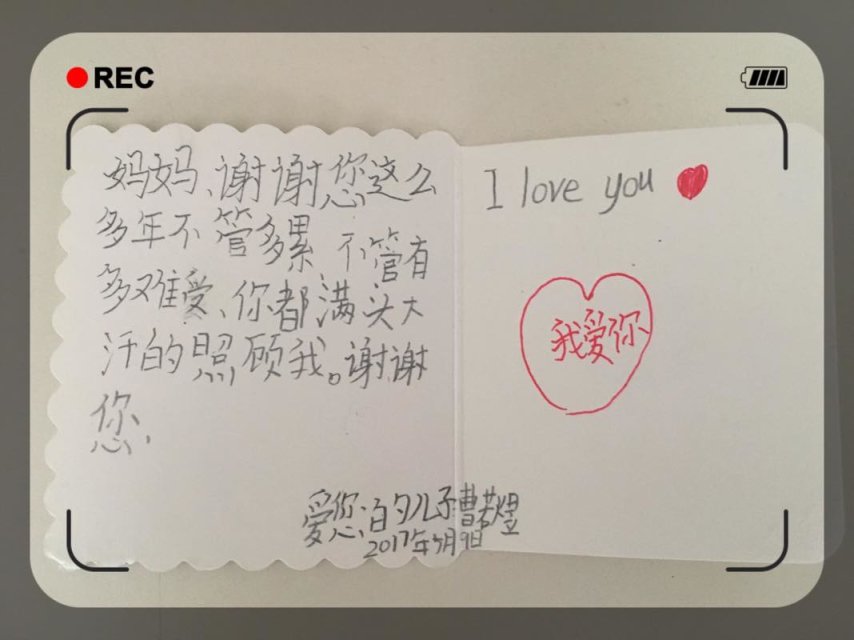 REC
妈妈、谢谢您这么
多年不管多累 不管有
多难受、你都满头大
汗的照顾我。谢谢
您,
爱您的儿子曹若煜
2017年3月9日
I love you
我爱你